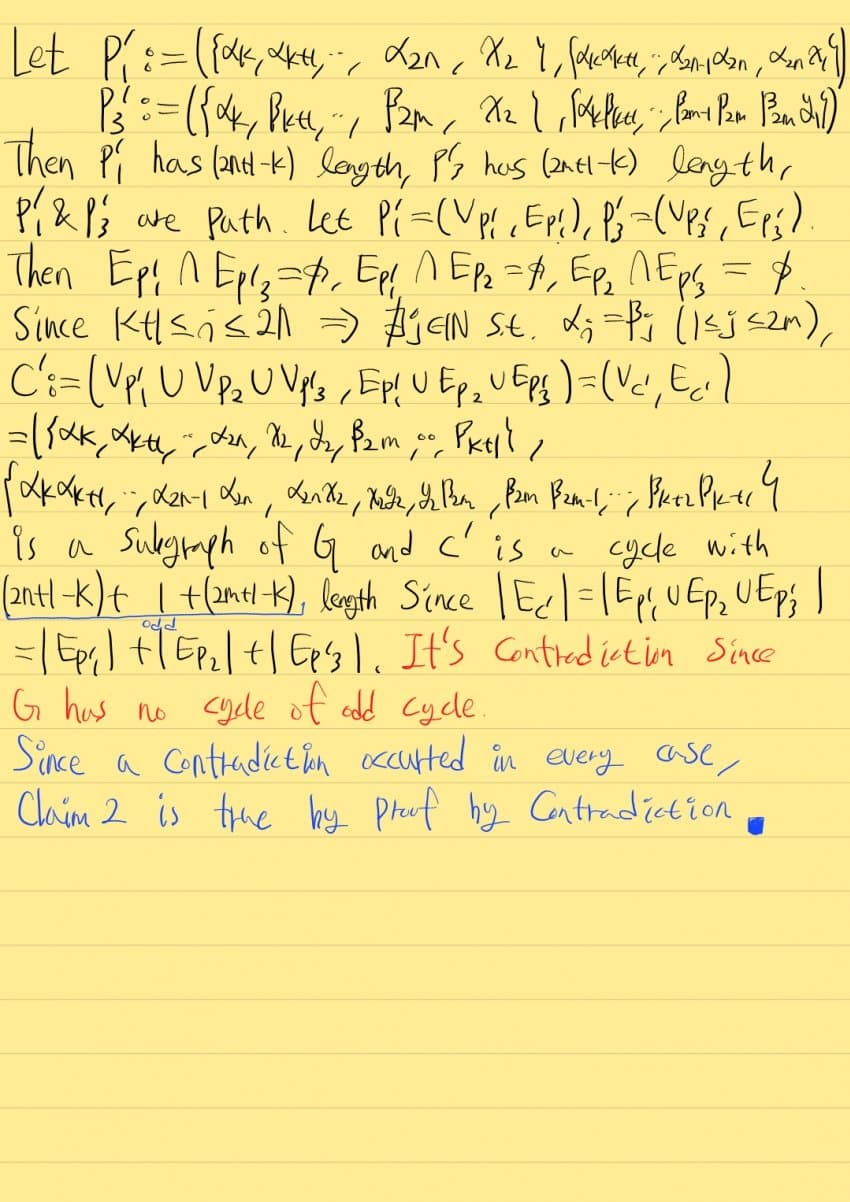 Let P₁′ := ({αₖ, αₖ₊₁, ‥, α₂ₙ, x₂}, {αₖαₖ₊₁, ‥, α₂ₙ₋₁α₂ₙ, α₂ₙx₁})
P₃′ := ({αₖ, βₖ₊₁, ‥, β₂ₘ, x₂}, {αₖβₖ₊₁, ‥, β₂ₘ₋₁β₂ₘ β₂ₘy₁})
Then P₁′ has (2n+1-k) length, P₃′ has (2m+1-k) length,
P₁′ & P₃′ are path. Let P₁′=(V_P₁′, E_P₁′), P₃′=(V_P₃′, E_P₃′).
Then E_P₁′ ∩ E_P₃′ = ϕ, E_P₁′ ∩ E_P₂ = ϕ, E_P₂ ∩ E_P₃′ = ϕ.
Since k+1 ≤ i ≤ 2n ⇒ ∄j∈ℕ s.t. αᵢ = βⱼ (1≤j≤2m),
C′ := (V_P₁′ ∪ V_P₂ ∪ V_P₃′, E_P₁′ ∪ E_P₂ ∪ E_P₃′) = (V_C′, E_C′)
= ({αₖ, αₖ₊₁, ‥, α₂ₙ, x₂, y₂, β₂ₘ, ‥, βₖ₊₁},
{αₖαₖ₊₁, ‥, α₂ₙ₋₁α₂ₙ, α₂ₙx₂, x₂y₂, y₂β₂ₘ, β₂ₘβ₂ₘ₋₁, ‥, βₖ₊₂βₖ₊₁}
is a subgraph of G and C′ is a cycle with
(2n+1-k) + 1 + (2m+1-k), length Since |E_C′| = |E_P₁′ ∪ E_P₂ ∪ E_P₃′|
odd
= |E_P₁′| + |E_P₂| + |E_P₃′|. It's Contradiction Since
G has no cycle of odd cycle.
Since a contradiction occurted in every case,
Claim 2 is true by Proof by Contradiction.